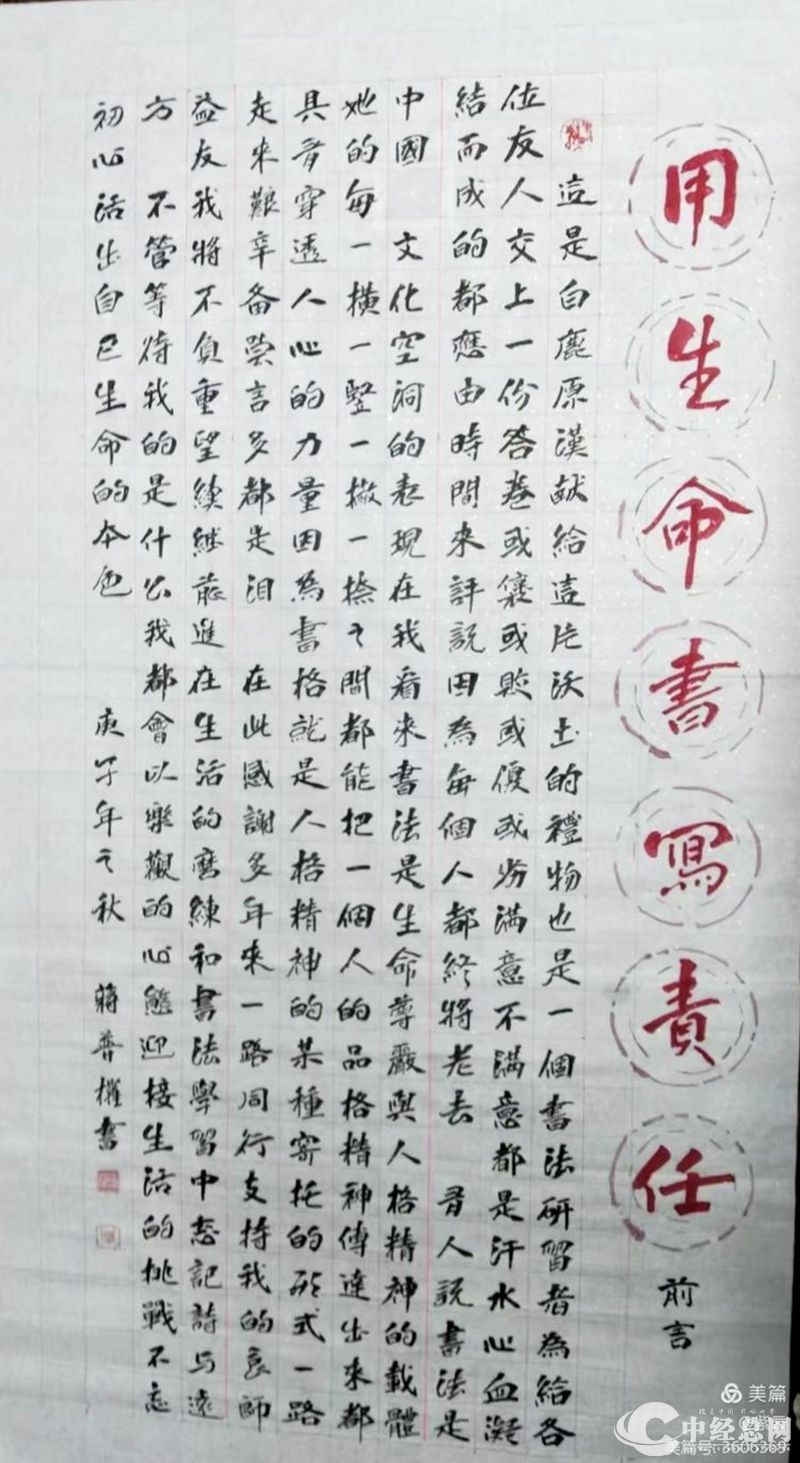 用生命書寫責任 前言
這是白鹿原漢献給這片沃土的禮物也是一個書法研習者為給各
位友人交上一份答卷或褒或貶或優或劣满意不满意都是汗水心血凝
結而成的都應由時間來評説因為每個人都終將老去 有人説書法是
中國 文化空洞的表現在我看来書法是生命尊嚴與人格精神的載體
她的每一横一竖一撇一捺之間都能把一個人的品格精神傳達出来都
具有穿透人心的力量因為書格就是人格精神的某種寄托的形式一路
走来艱辛备嘗言多都是泪 在此感謝多年来一路同行支持我的良師
益友我將不負重望续继前進在生活的磨練和書法學習中忘記詩与遠
方 不管等待我的是什么我都會以樂觀的心態迎接生活的挑戰不忘
初心活出自己生命的本色 庚子年之秋 蔣普權書
美篇
中经总网
美篇号:3606369